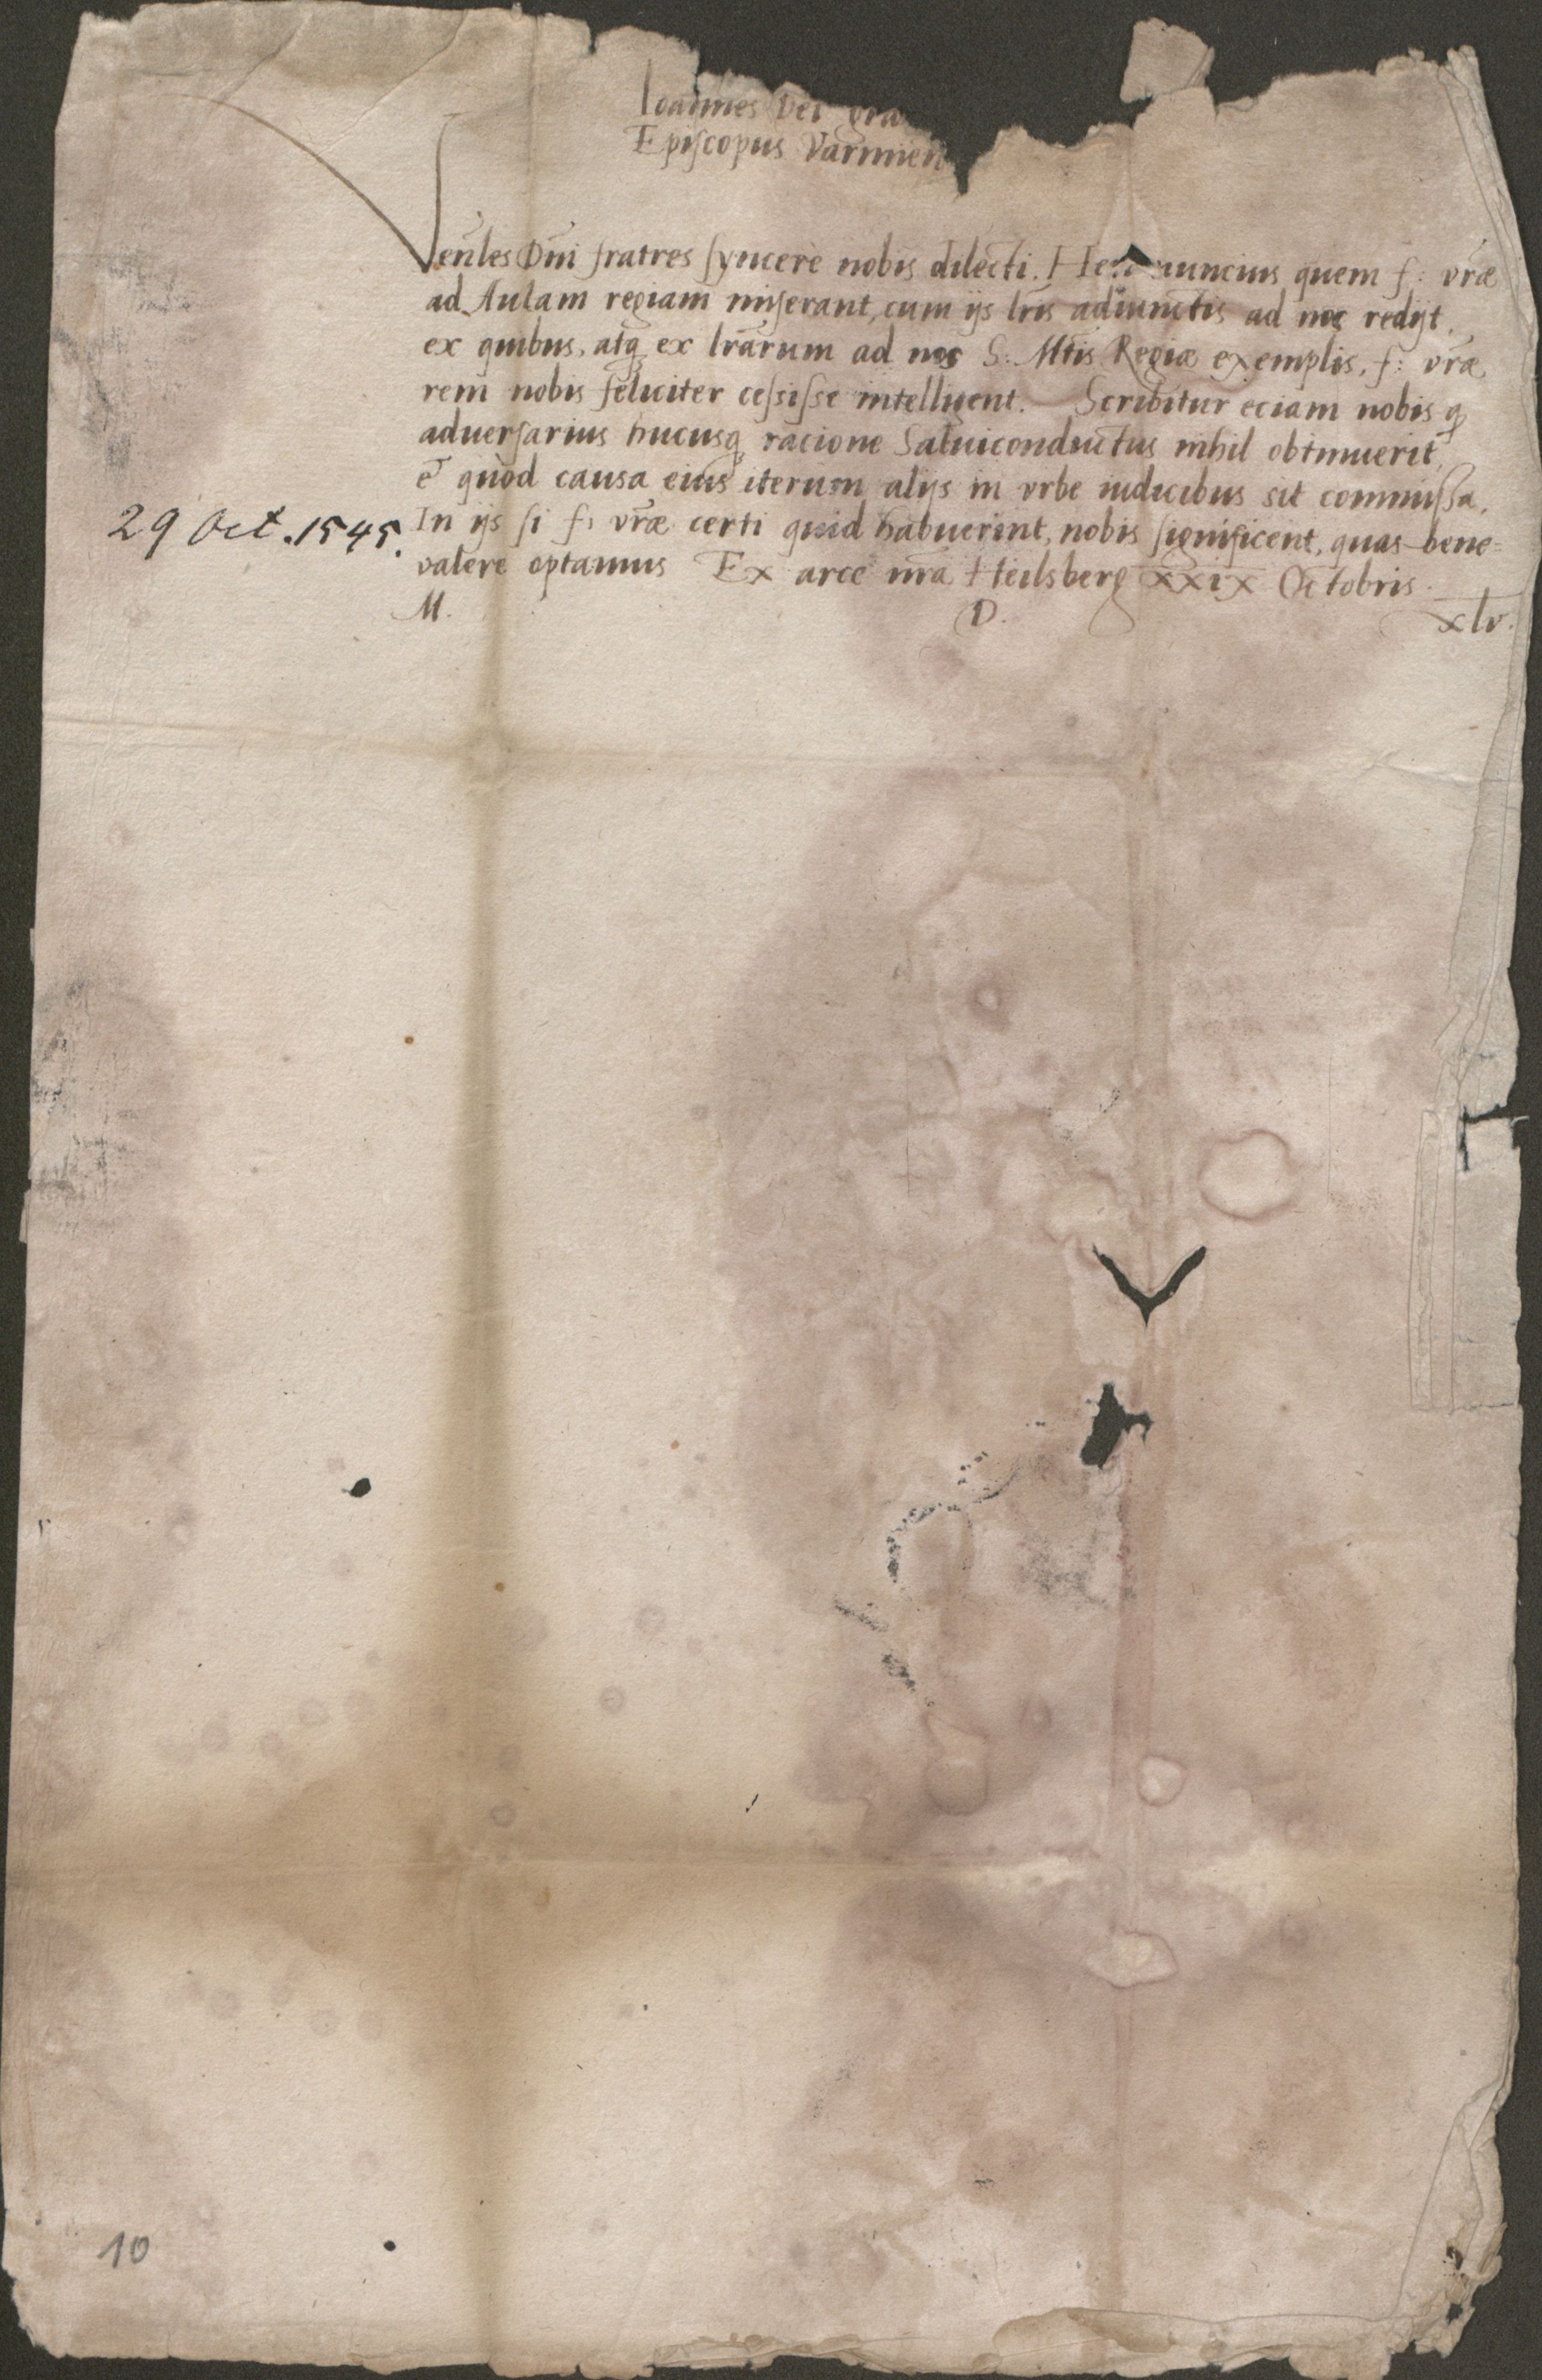 Ioannes Dei gra
Episcopus Varmien
Venles Dni fratres syncere nobis dilecti. Heri nuncius quem f: vrae
ad Aulam regiam miserant, cum ijs lris adiunctis ad nos redijt,
ex quibus, atq ex lrarum ad nos S: Mtis Regiae exemplis, f: vrae
rem nobis feliciter cessisse intelligent. Scribitur eciam nobis q
aduersarius hucusq racione Saluiconductus nihil obtinuerit,
quod causa eius iterum alijs in vrbe iudicibus sit commissa.
29 Oct. 1545. In ijs si f: vrae certi quid habuerint, nobis significent, quas bene=
valere optamus Ex arce nra Heilsberg XXIX Octobris.
M. D. xlv.
10